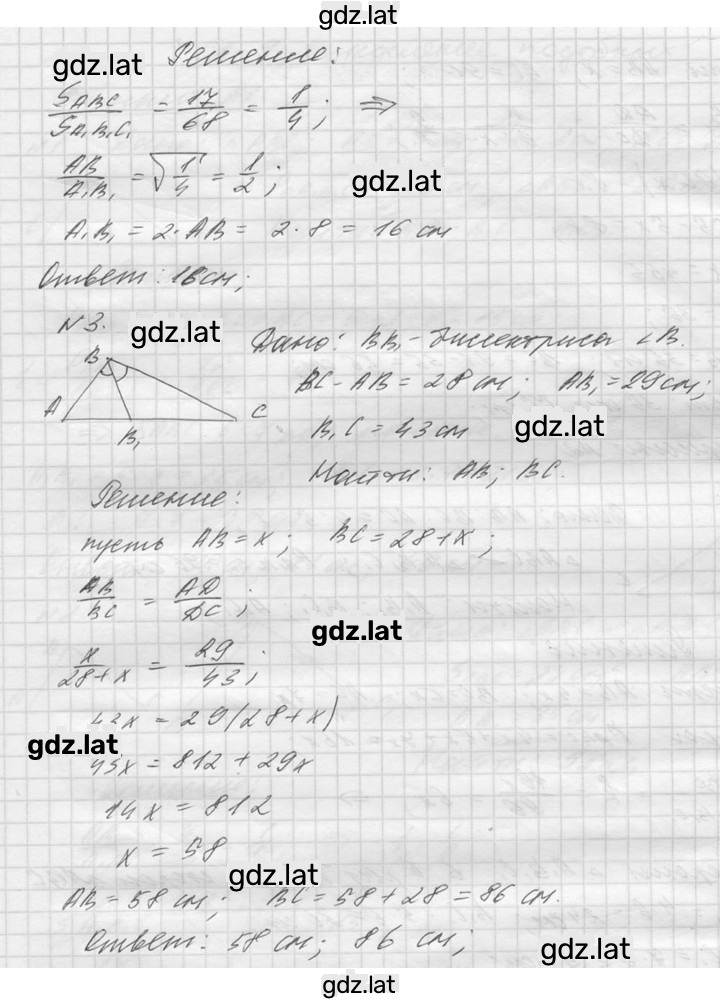 gdz.lat
Решение:
gdz.lat
S_ABC / S_A₁B₁C₁ = 17/68 = 1/4; ⇒
AB/A₁B₁ = √(1/4) = 1/2;
gdz.lat
A₁B₁ = 2·AB = 2·8 = 16 см
Ответ: 16см;
N 3.
gdz.lat
Дано: BB₁ - биссектриса ∠B.
BC - AB = 28 см; AB₁ = 29 см;
B₁C = 43 см
gdz.lat
Найти: AB; BC.
B
A
B₁
C
Решение:
пусть AB = x; BC = 28 + x;
AB/BC = AD/DC;
gdz.lat
x/(28+x) = 29/43;
43x = 29(28+x)
gdz.lat
43x = 812 + 29x
14x = 812
x = 58
gdz.lat
AB = 58 см; BC = 58 + 28 = 86 см.
Ответ: 58 см; 86 см;
gdz.lat
gdz.lat